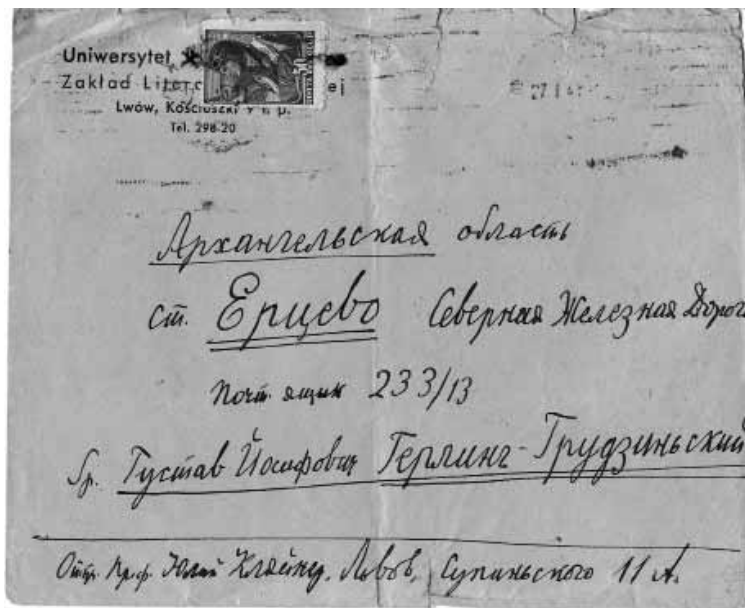 Uniwersytet
Zakład
Lwów, Kościuszki 9 I. p.
Tel. 298-20
27 I 41
Архангельская область
ст. Ерцево Северная Железная Дорога
Почт. ящик 233/13
Гр. Густав Йосифович Герлинг-Грудзиньский
Отпр. Проф. Юлий Кляйнер, Львов, Супиньского 11 А.